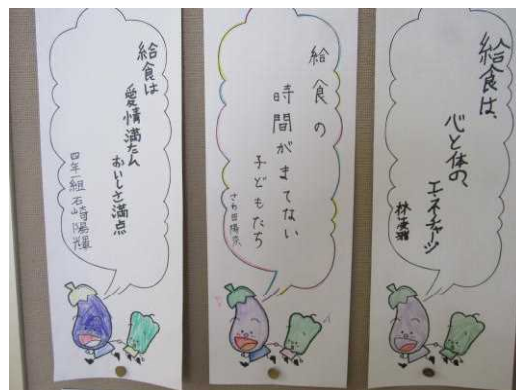 給食は
愛情満たん
おいしさ満点
四年一組 石崎陽輝
給食の
時間がまてない
子どもたち
給食は、
心と体の、
エネチャージ
林